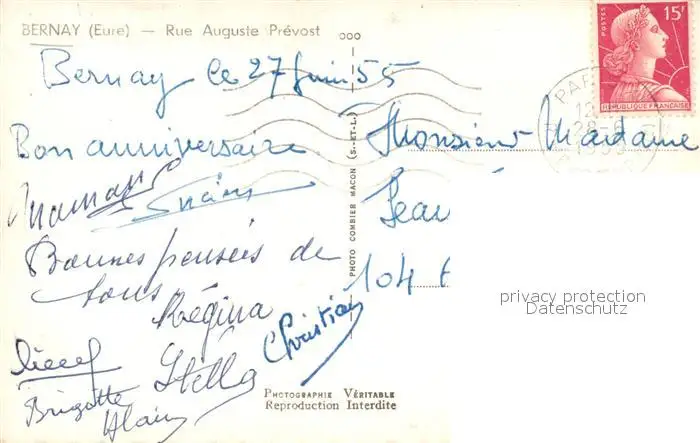 BERNAY (Eure) — Rue Auguste Prévost
Bernay le 27 Juin 55
Bon anniversaire
Maman
Bonnes pensées de
tous
Régina
Christian
Stella
Brigitte
Alain
PHOTO COMBIER MACON (S.-ET-L.)
PHOTOGRAPHIE VÉRITABLE
Reproduction Interdite
POSTES
15F
REPUBLIQUE FRANÇAISE
Monsieur Madame
Jean
104
privacy protection
Datenschutz